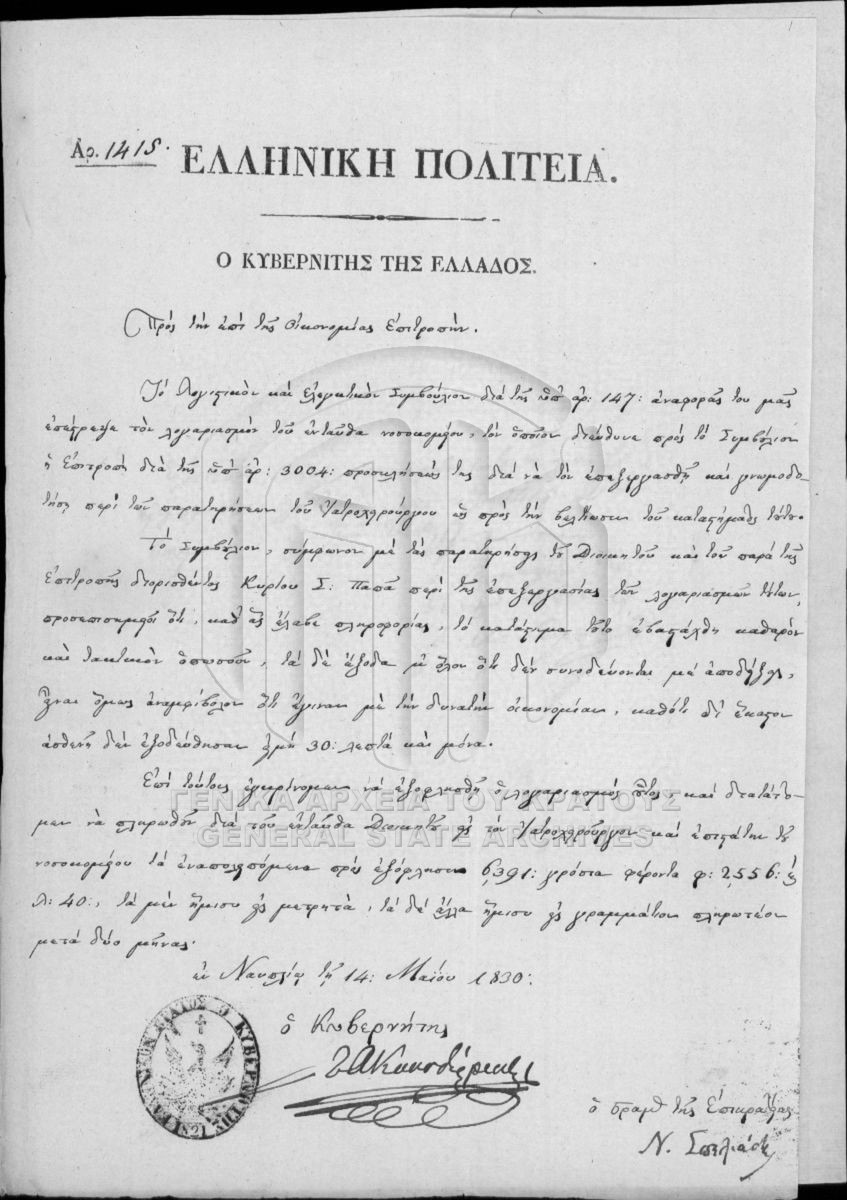 Ἀρ. 1415.
ΕΛΛΗΝΙΚΗ ΠΟΛΙΤΕΙΑ.
Ο ΚΥΒΕΡΝΙΤΗΣ ΤΗΣ ΕΛΛΑΔΟΣ.
Πρός τὴν ἐπὶ τῆς Οἰκονομίας Ἐπιτροπὴν.
Τὸ Λογιστικὸν καὶ Ἐλεγκτικὸν Συμβούλιον διὰ τῆς ὑπ' ἀρ: 147: ἀναφορᾶς του μᾶς
ἐπέστρεψε τὸν λογαριασμὸν τοῦ ἐνταῦθα νοσοκομείου, τὸν ὁποῖον διεύθυνε πρὸς τὸ Συμβούλιον
ἡ Ἐπιτροπὴ διὰ τῆς ὑπ' ἀρ: 3004: προσκλήσεώς της διὰ νὰ τὸν ἐπεξεργασθῇ καὶ γνωμοδο-
τήσῃ περὶ τῶν παρατηρήσεων τοῦ Ἰατροχειρούργου ὡς πρὸς τὴν βελτίωσιν τοῦ καταστήματος τούτου.
Τὸ Συμβούλιον, σύμφωνον μὲ τὰς παρατηρήσεις τοῦ Διοικητοῦ καὶ τοῦ παρὰ τῆς
Ἐπιτροπῆς διορισθέντος Κυρίου Σ: Παπᾶ περὶ τῆς ἐπεξεργασίας τῶν λογαριασμῶν τούτων,
προσεπισημειοῖ ὅτι, καθ' ἃς ἔλαβε πληροφορίας, τὸ κατάστημα τοῦτο ἐβαστάχθη καθαρὸν
καὶ τακτικὸν ὁπωσοῦν, τὰ δὲ ἔξοδα μ' ὅλον ὅτι δὲν συνοδεύονται μὲ ἀποδείξεις,
εἶναι ὅμως ἀναμφίβολον ὅτι ἔγιναν μὲ τὴν δυνατὴν οἰκονομίαν, καθότι δι' ἕκαστον
ἀσθενῆ δὲν ἐξοδεύθησαν εἰμὴ 30: λεπτὰ καὶ μόνα.
Ἐπὶ τούτοις ἐγκρίνομεν νὰ ἐξοφλησθῇ ὁ λογαριασμὸς οὗτος, καὶ διατάττο-
μεν νὰ πληρωθοῦν διὰ τοῦ ἐνταῦθα Διοικητοῦ εἰς τὸν Ἰατροχειρούργον καὶ ἐπιστάτην τοῦ
νοσοκομείου τὰ ἐναπολειπόμενα πρὸς ἐξόφλησιν 6,391: γρόσια φέροντα φ: 2,556: &
λ: 40:, τὰ μὲν ἥμισυ εἰς μετρητὰ, τὰ δὲ ἄλλα ἥμισυ εἰς γραμμάτιον πληρωτέον
μετὰ δύο μῆνας.
ἐν Ναυπλίῳ τῇ 14: Μαΐου 1830:
ὁ Κυβερνήτης
Ι Α Καποδίστριας
ὁ Γραμ^τ τῆς Ἐπικρατείας
Ν. Σπηλιάδης
Ο ΚΥΒΕΡΝΗΤΗΣ
ΓΕΝΙΚΑ ΑΡΧΕΙΑ ΤΟΥ ΚΡΑΤΟΥΣ
GENERAL STATE ARCHIVES